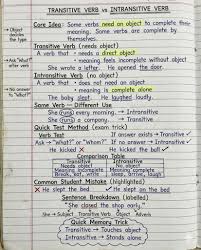 TRANSITIVE VERB vs INTRANSITIVE VERB
Core Idea: Some verbs need an object to complete their
meaning. Some verbs are complete by
themselves.
→ Object decides the type
Transitive Verb (needs object)
A verb that • needs a direct object
• meaning feels incomplete without object
→ Ask "What?" after verb
She wrote a letter. He opened the door.
Intransitive Verb (no object)
A verb that • does not need an object
• meaning is complete alone
→ No answer to "What?"
The baby slept. He laughed loudly.
Same Verb – Different Use
She (runs) a company. → Transitive
She (runs) every morning. → Intransitive
Quick Test Method (exam trick)
Verb Test
If answer exists → Transitive ✓
Ask → "What?" or "Whom?" If no answer → Intransitive ✓
He kicked the ball ✓ He kicked ✗
Comparison Table
Transitive Intransitive
Needs object No object
Meaning incomplete Meaning complete
Break, eat, write Sleep, arrive, laugh
Common Student Mistake (highlighted)
✗ He slept the bed ✓ He slept on the bed
Sentence Breakdown (labelled)
"She closed the shop early."
She → Subject Transitive Verb Object Adverb
Quick Memory Trick
Transitive → Touches object
Intransitive → Stands alone